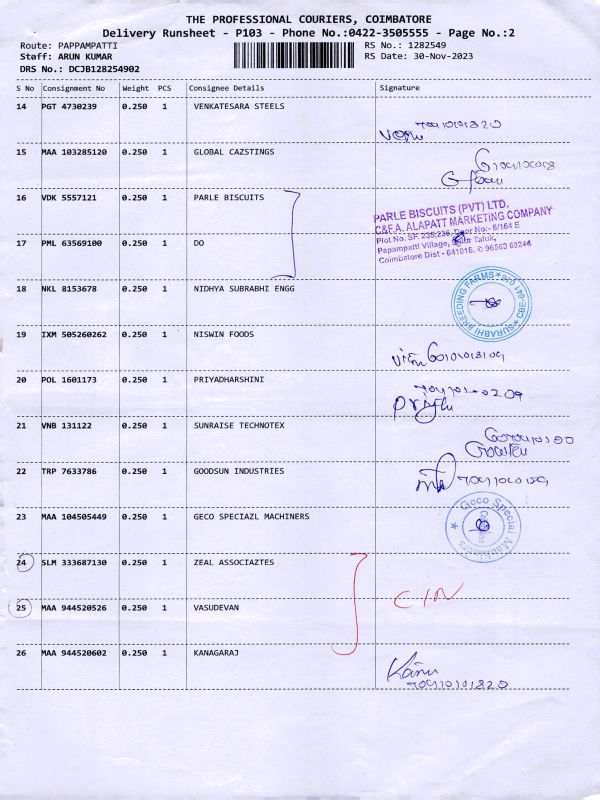 THE PROFESSIONAL COURIERS, COIMBATORE
Delivery Runsheet - P103 - Phone No.:0422-3505555 - Page No.:2
Route: PAPPAMPATTI RS No.: 1282549
Staff: ARUN KUMAR RS Date: 30-Nov-2023
DRS No.: DCJB128254902
S No Consignment No Weight PCS Consignee Details Signature
14 PGT 4730239 0.250 1 VENKATESARA STEELS
15 MAA 103285120 0.250 1 GLOBAL CAZSTINGS
16 VDK 5557121 0.250 1 PARLE BISCUITS
PARLE BISCUITS (PVT) LTD.
C&F.A. ALAPATT MARKETING COMPANY
Plot No. SF. 235,236, Door No:- 6/164 E
Papampatti Village, Sulur Taluk,
Coimbatore Dist - 641016. ✆ 96563 69244
17 PML 63569100 0.250 1 DO
18 NKL 8153678 0.250 1 NIDHYA SUBRABHI ENGG
SURABHI BREEDING FARMS * CBE-641 016 *
19 IXM 505260262 0.250 1 NISWIN FOODS
20 POL 1601173 0.250 1 PRIYADHARSHINI
21 VNB 131122 0.250 1 SUNRAISE TECHNOTEX
22 TRP 7633786 0.250 1 GOODSUN INDUSTRIES
23 MAA 104505449 0.250 1 GECO SPECIAZL MACHINERS
Geco Special Machines
24 SLM 333687130 0.250 1 ZEAL ASSOCIAZTES
25 MAA 944520526 0.250 1 VASUDEVAN
C/N
26 MAA 944520602 0.250 1 KANAGARAJ